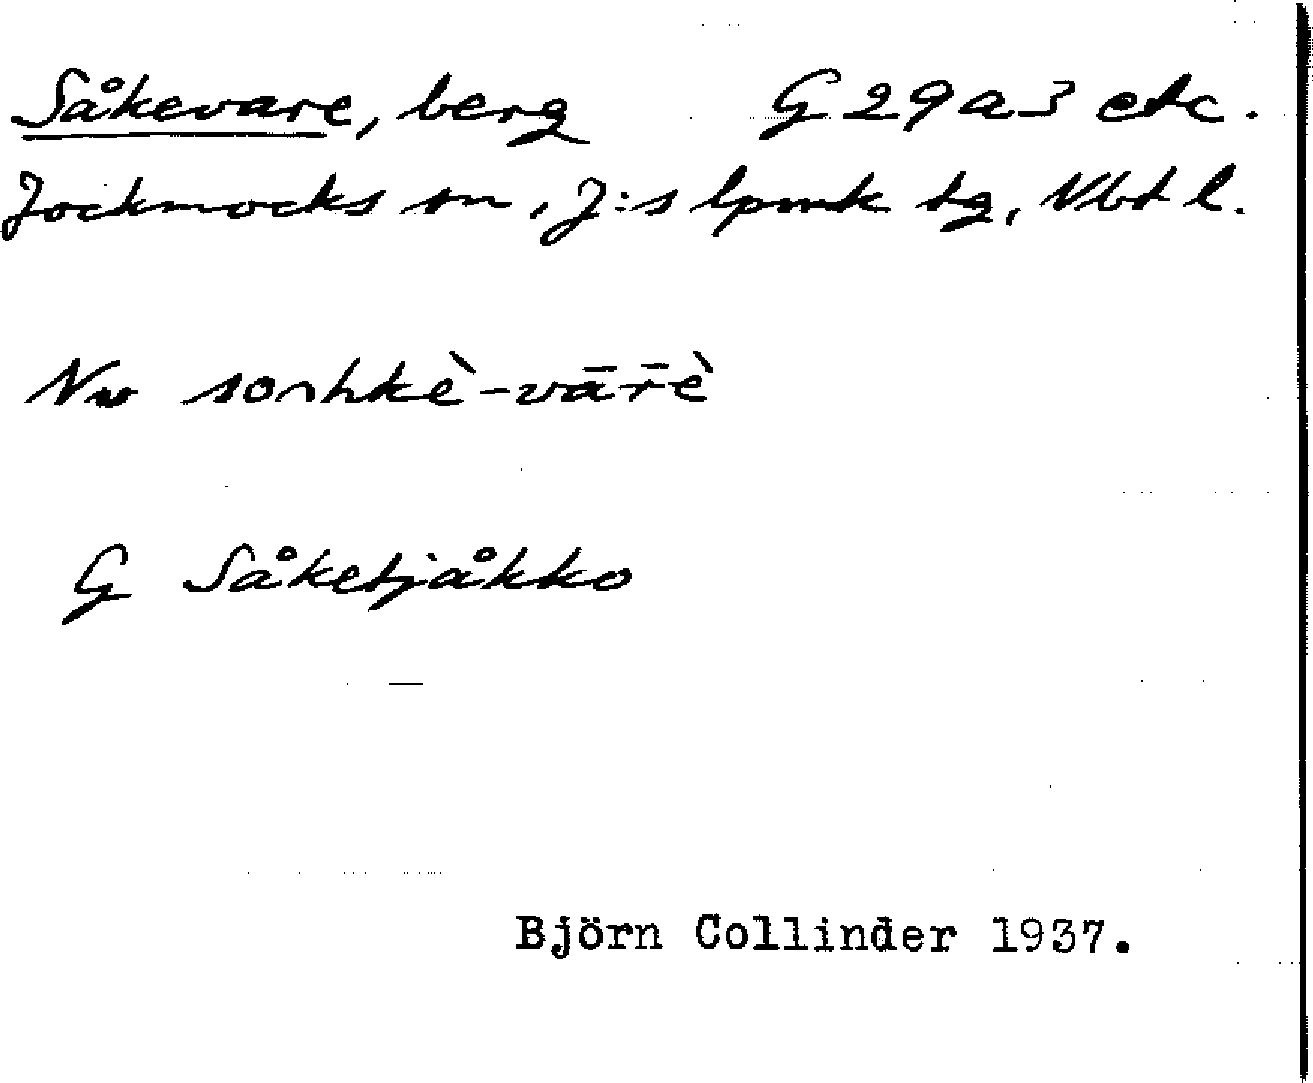 Såkevare, berg G 29 a 3 etc.
Jockmocks sn, J:s lpmk tg, Vbt l.
Nw sorhkè-vār̄è
G Såketjåkko
Björn Collinder 1937.